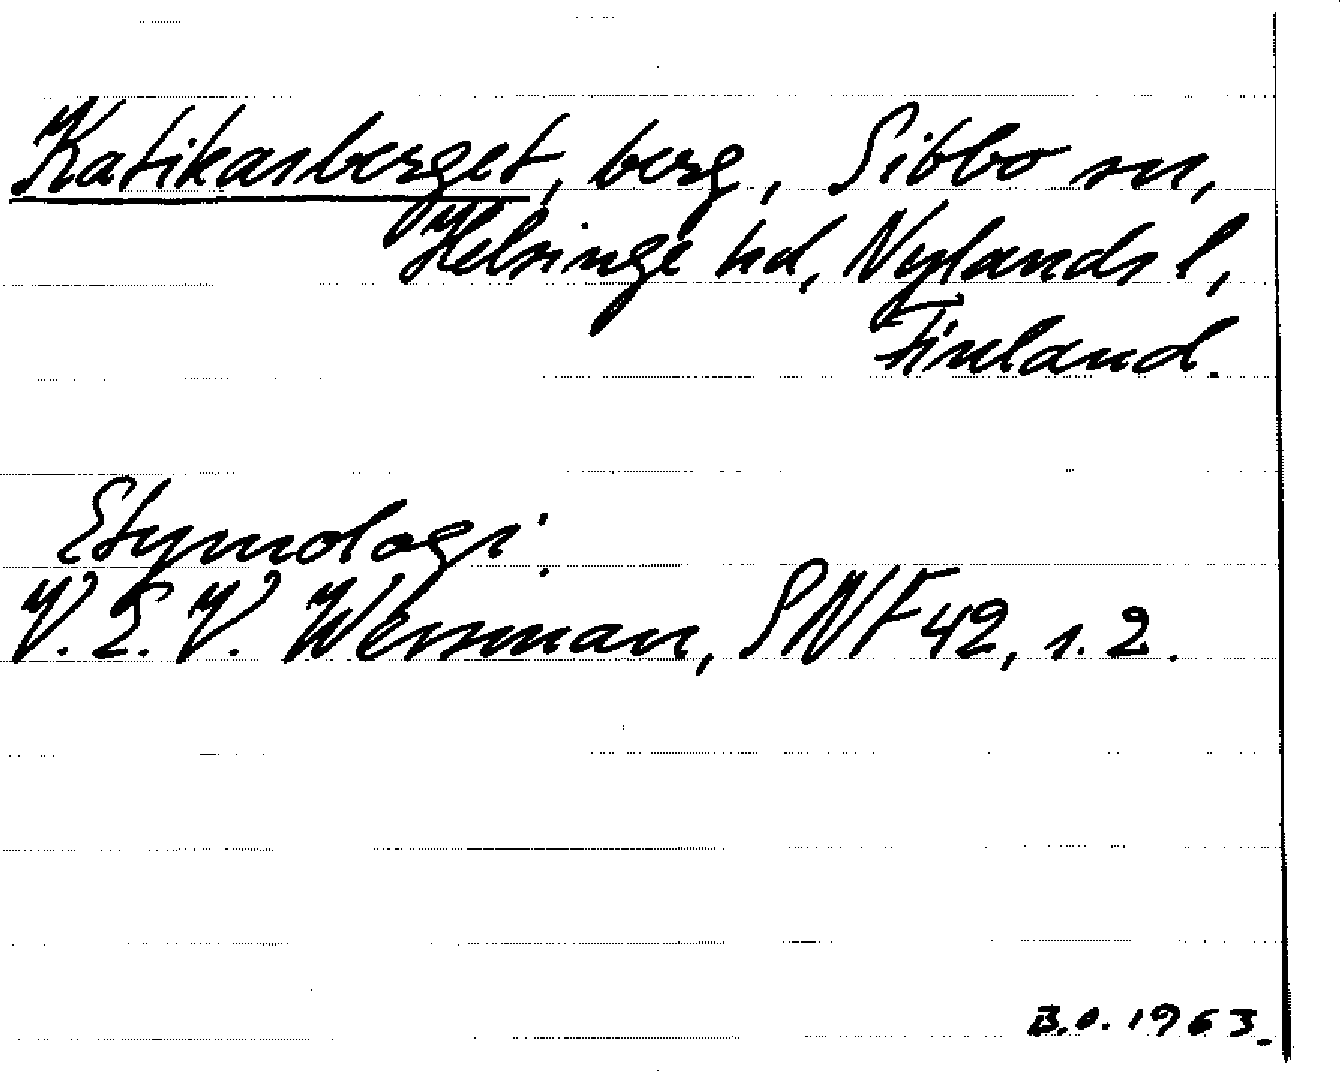 Katikasberget, berg, Sibbo sn,
Helsinge hd, Nylands l,
Finland.
Etymologi.
V. E. V. Wessman, SNF 42, s. 2.
B.O. 1963.